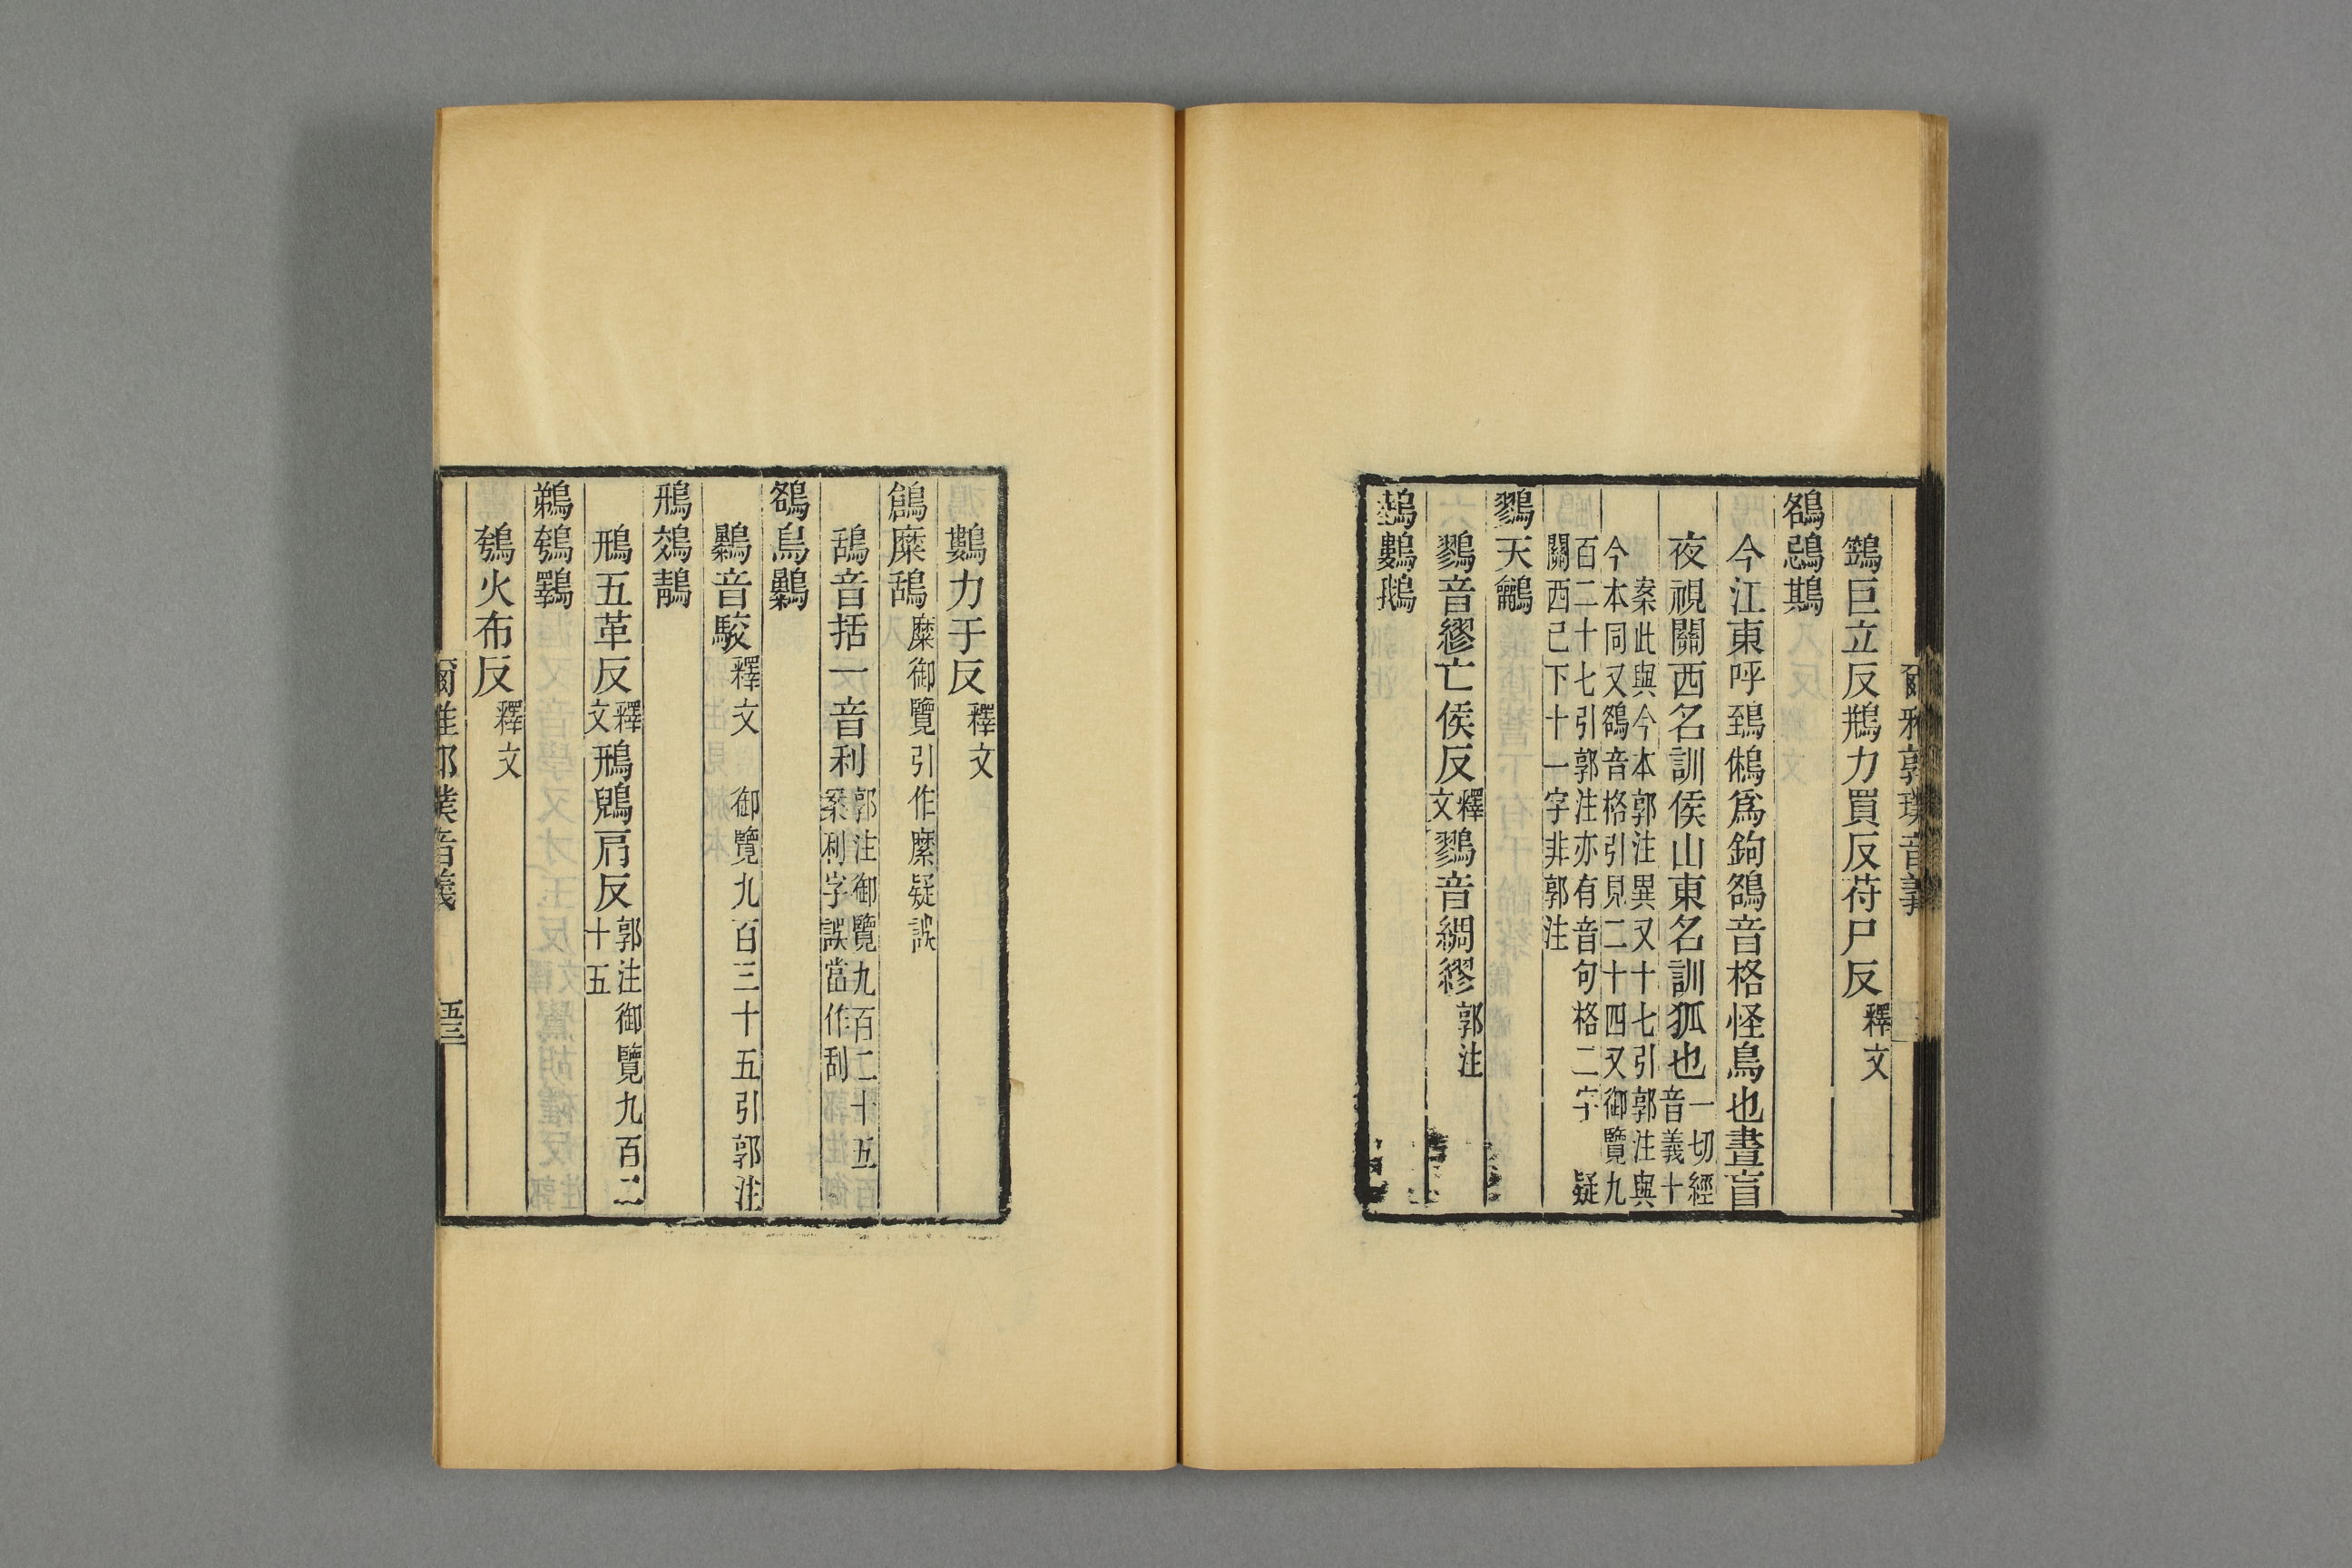 爾雅郭璞音義
鷑巨立反鵧力買反苻尸反釋文
鵅鵋鶀
今江東呼鵄鵂爲鉤鵅音格怪鳥也晝盲
夜視關西名訓侯山東名訓狐也一切經音義十
案此與今本郭注異又十七引郭注與
今本同又鵅音格引見二十四又御覽九
百二十七引郭注亦有音句格二字疑
關西已下十一字非郭注
鷚天鸙
鷚音繆亡侯反釋文鷚音綢繆郭注
鵱鷜鵝
鷜力于反釋文
鶬糜鴰糜御覽引作縻疑誤
鴰音括一音利郭注御覽九百二十五案利字誤當作刮
鵅烏鸔
鸔音駮釋文御覽九百三十五引郭注
鳽鵁鶄
鳽五革反釋文鳽鶃肩反郭注御覽九百二十五
鵜鴮鸅
鴮火布反釋文
爾雅郭璞音義